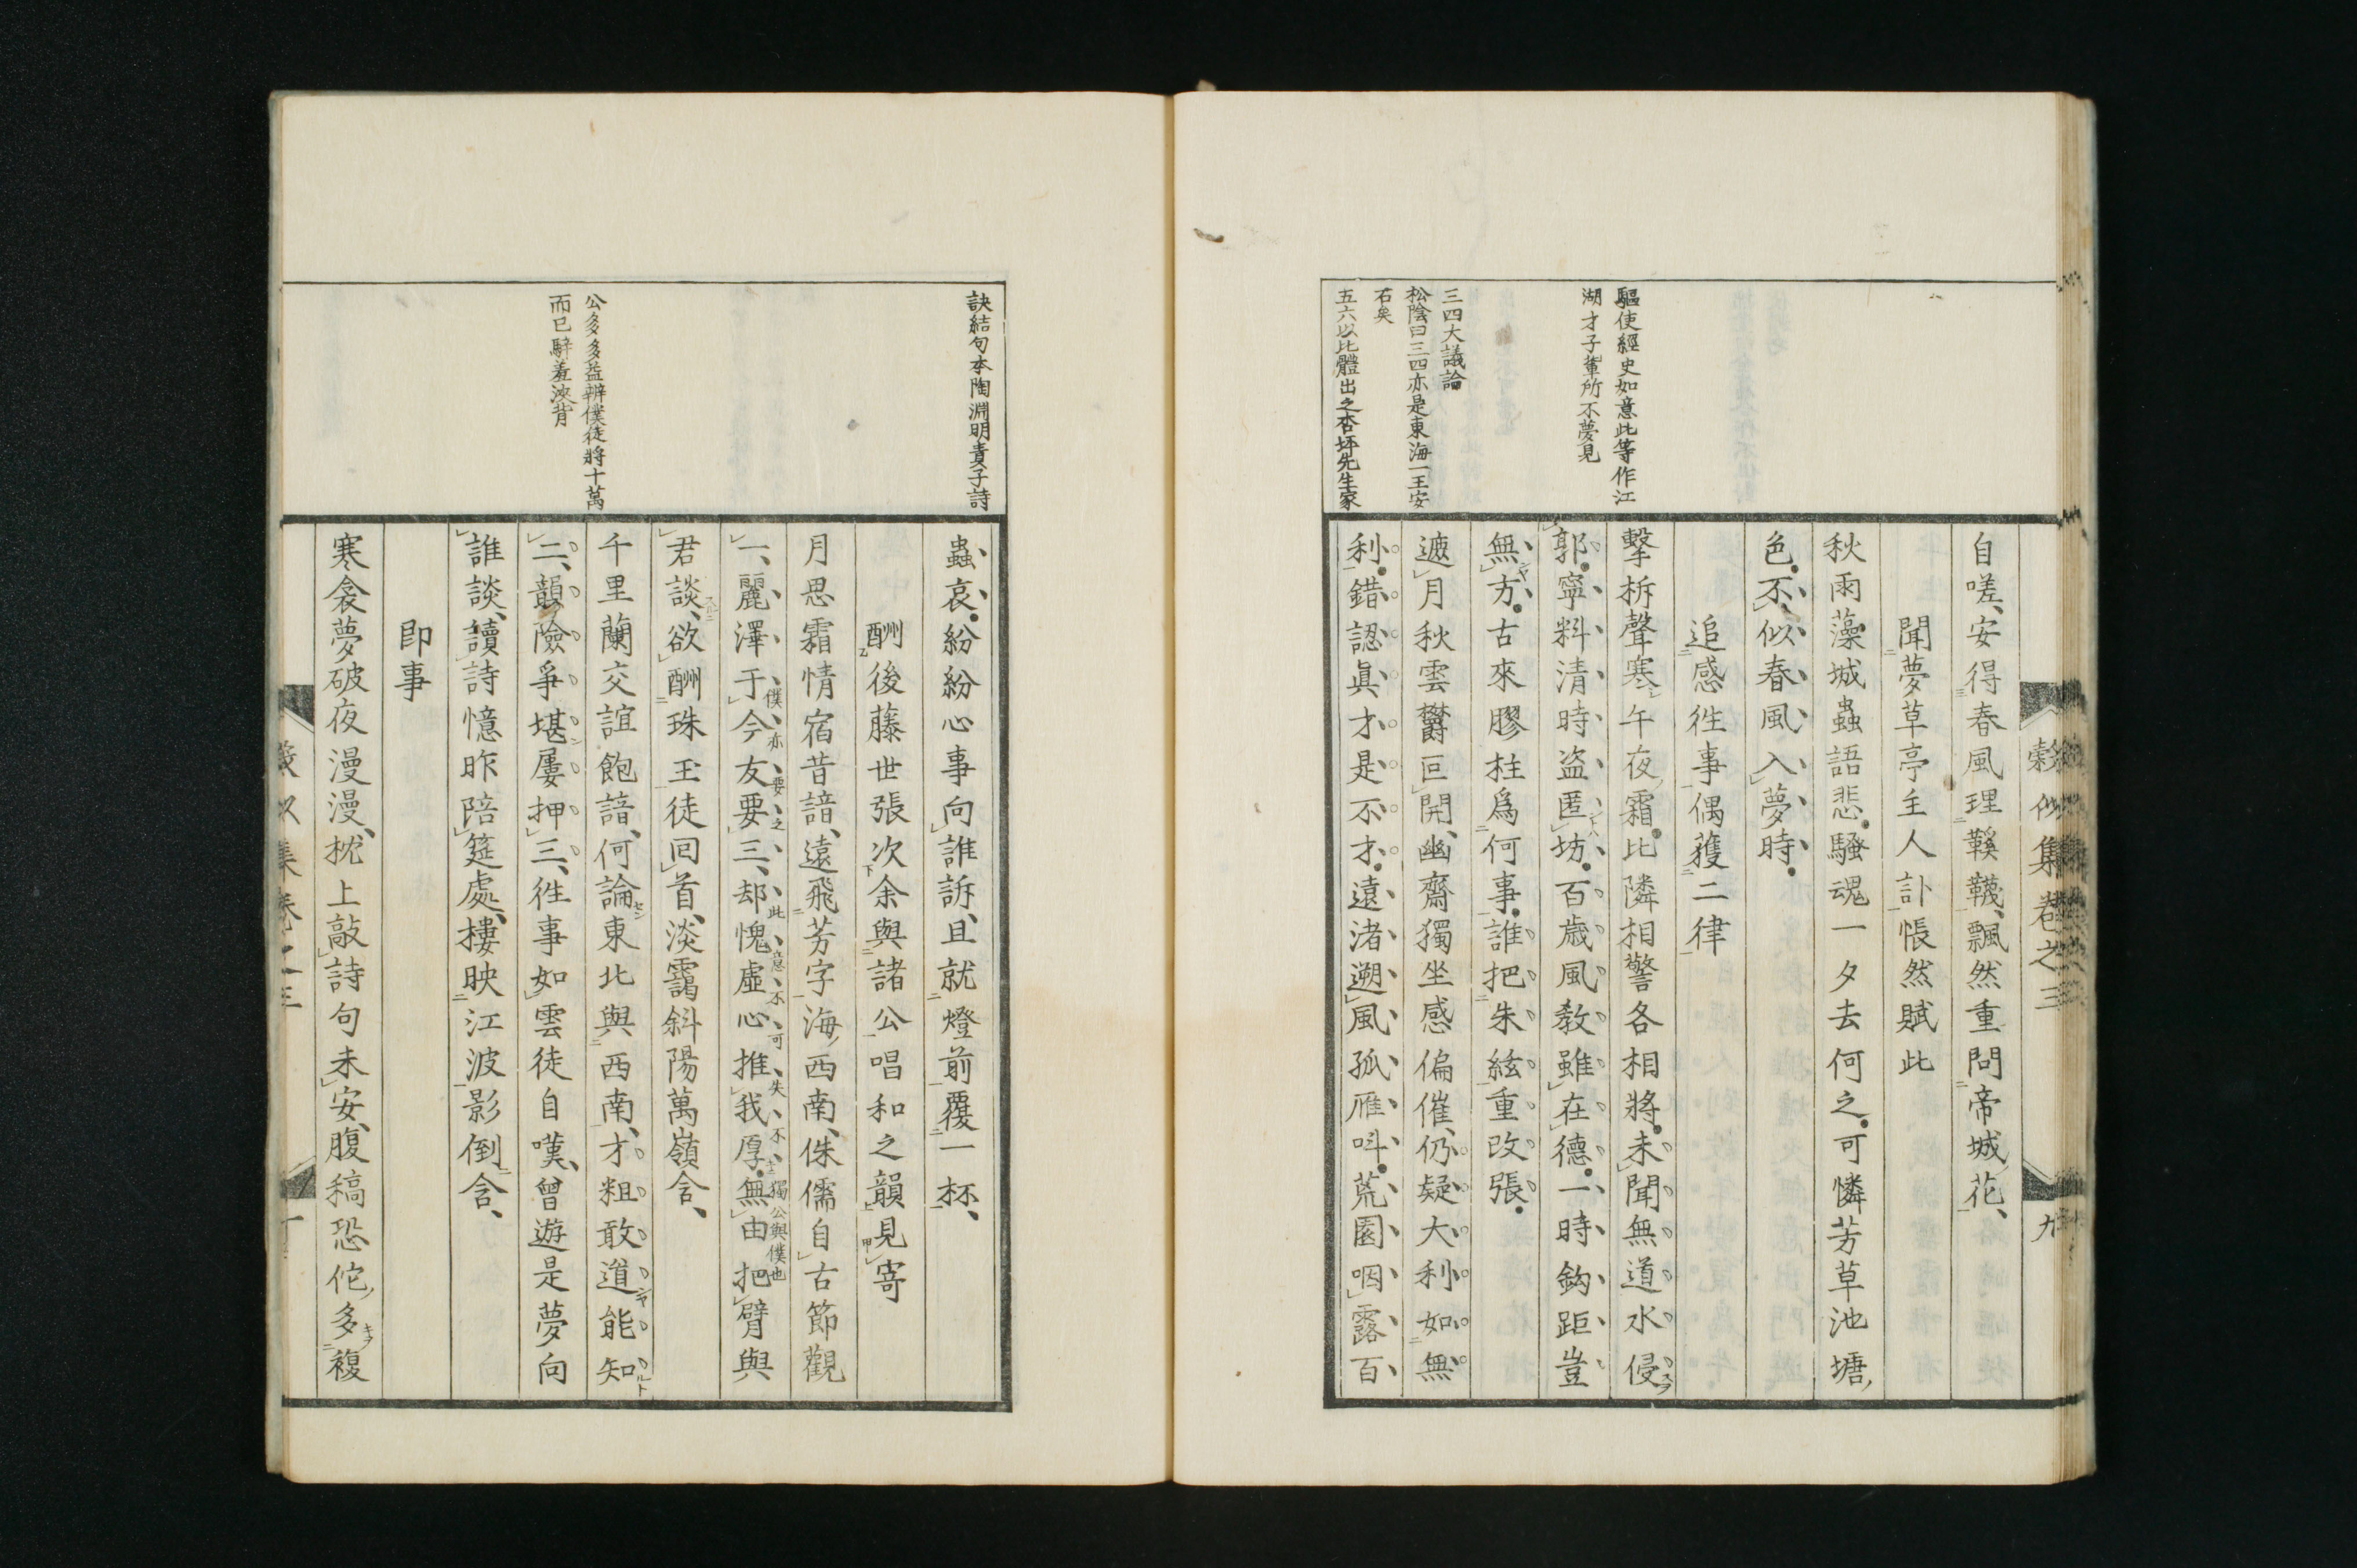 穀似集卷之三
九
自嗟安得春風理鞵韈飄然重問帝城花
聞夢草亭主人訃悵然賦此
秋雨藻城蟲語悲騷魂一夕去何之可憐芳草池塘
色不似春風入夢時
追感徃事偶獲二律
擊柝聲寒午夜霜比隣相警各相將未聞無道水侵
郭寧料清時盗匿坊百歳風教雖在德一時鈎距豈
無方古來膠柱爲何事誰把朱絃重改張
遮月秋雲欝叵開幽齋獨坐感偏催仍疑大利如無
利錯認眞才是不才遠渚遡風孤雁呌荒園咽露百
驅使經史如意此等作江
湖才子輩所不夢見
三四大議論
松陰曰三四亦是東海一王安
石矣
五六以比體出之杏坪先生家
蟲哀紛紛心事向誰訴且就燈前覆一杯
酬後藤世張次余與諸公唱和之韻見寄
月思霜情宿昔諳遠飛芳字海西南侏儒自古節觀
一麗澤于今友要三却愧虛心推我厚無由把臂與
僕亦要之此意不可失不獨公與僕也
君談欲酬珠玉徒回首淡靄斜陽萬嶺含
千里蘭交誼飽諳何論東北與西南才粗敢道能知
二韻險爭堪屢押三徃事如雲徒自嘆曾遊是夢向
誰談讀詩憶昨陪筵處樓映江波影倒含
即事
寒衾夢破夜漫漫枕上敲詩句未安腹稿恐佗多複
訣結句本陶淵明責子詩
公多多益辨僕徒將十萬
而已騂羞浹背